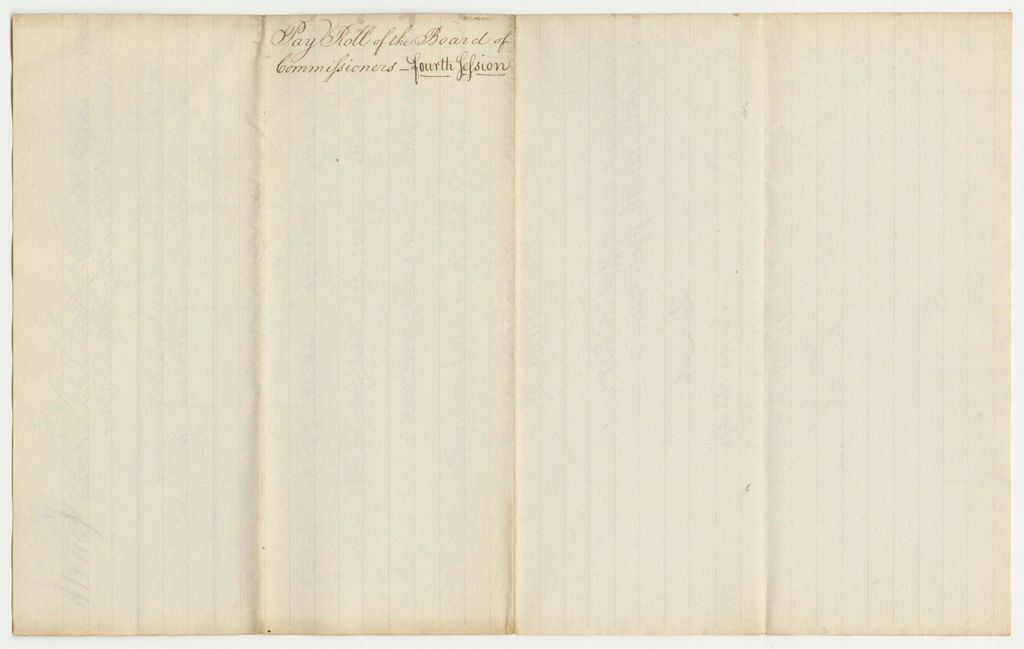 Pay Roll of the Board of
Commiſsioners – fourth Seſsion